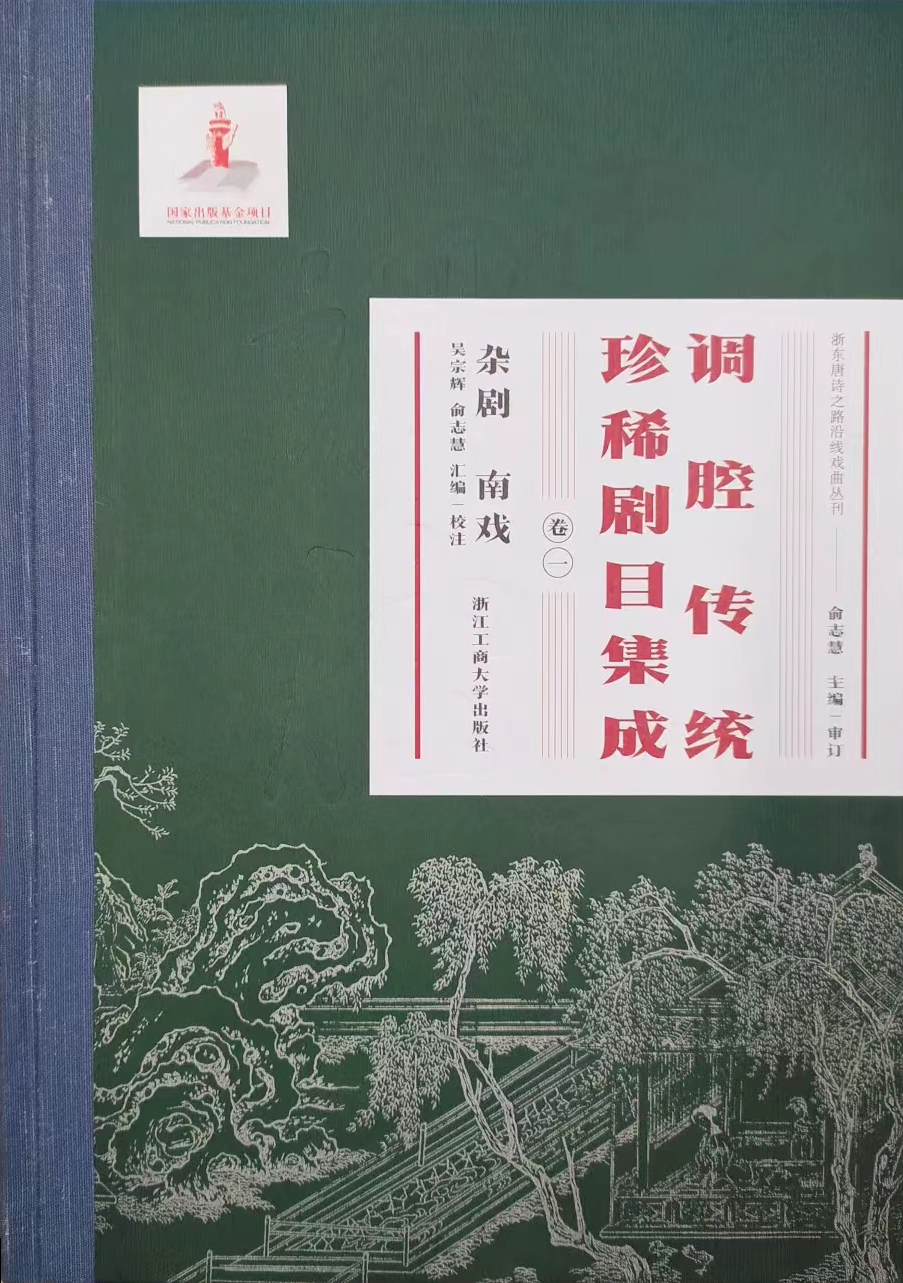 国家出版基金项目
NATIONAL PUBLICATION FOUNDATION
浙东唐诗之路沿线戏曲丛刊 —— 俞志慧 主编|审订
调腔传统
珍稀剧目集成
卷一
杂剧 南戏
吴宗辉 俞志慧 汇编|校注
浙江工商大学出版社